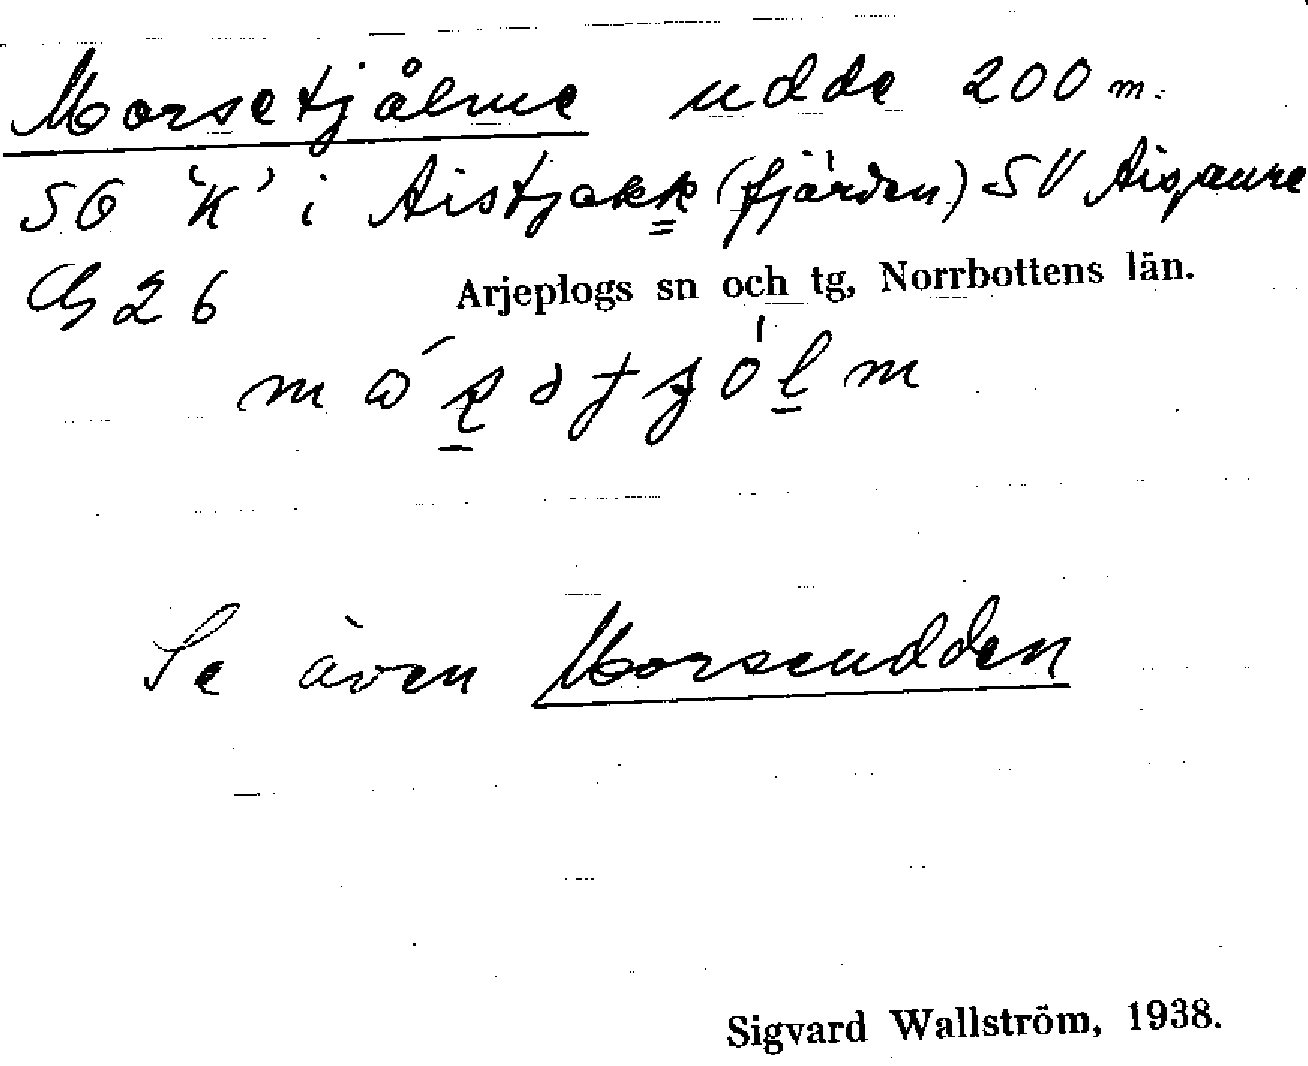 Morsetjålme udde 200 m.
SO 'K' i Aistjakk (fjärden) SV Aisjaure
G 2 6
Arjeplogs sn och tg, Norrbottens län.
Se även Morseudden
Sigvard Wallström, 1938.